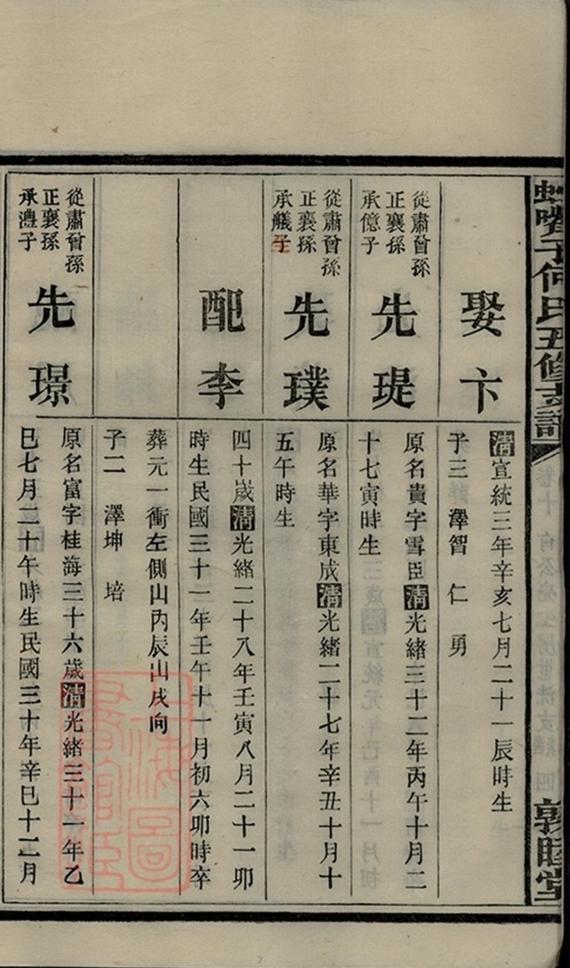 何氏五修支譜
敦睦堂
娶卞
清宣統三年辛亥七月二十一辰時生
子三 澤智 仁 勇
從肅曾孫
正襄孫
承億子
先瑅
原名貴字雪臣清光緒三十二年丙午十月二
十七寅時生
從肅曾孫
正襄孫
承艤子
先璞
原名華字東成清光緒二十七年辛丑十月十
五午時生
配李
四十歲清光緒二十八年壬寅八月二十一卯
時生民國三十一年壬午十一月初六卯時卒
葬元一衝左側山丙辰山戍向
子二 澤坤 培
從肅曾孫
正襄孫
承灃子
先璟
原名富字桂海三十六歲清光緒三十一年乙
巳七月二十午時生民國三十年辛巳十二月